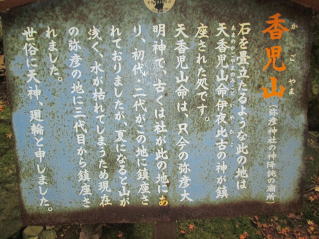 香児山
かごやま
（弥彦神社の神陣鉾の廟所）
石を畳立たるような此の地は
天香児山命伊夜比古の神が鎮
座された処です。
天香児山命は、只今の弥彦大
明神で、古くは社が此の地にあ
り、初代、二代がこの地に鎮座さ
れておりましたが、夏になると山が
浅く、水が枯れてしまうため現在
の弥彦の地に三代目から鎮座さ
れました。
世俗に天神、廻輪と申しました。